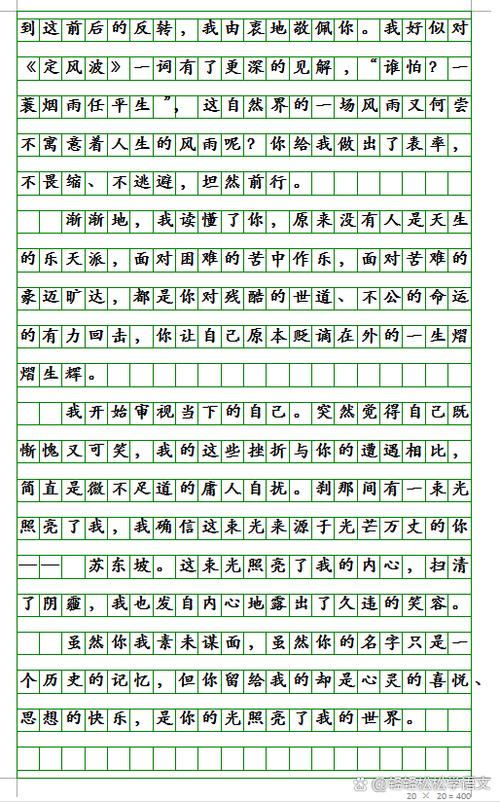 到这前后的反转，我由衷地敬佩你。我好似对
《定风波》一词有了更深的见解，“谁怕？一
蓑烟雨任平生”，这自然界的一场风雨又何尝
不寓意着人生的风雨呢？你给我做出了表率，
不畏缩、不逃避，坦然前行。
渐渐地，我读懂了你，原来没有人是天生
的乐天派，面对困难的苦中作乐，面对苦难的
豪迈旷达，都是你对残酷的世道、不公的命运
的有力回击，你让自己原本贬谪在外的一生熠
熠生辉。
我开始审视当下的自己。突然觉得自己既
惭愧又可笑，我的这些挫折与你的遭遇相比，
简直是微不足道的庸人自扰。刹那间有一束光
照亮了我，我确信这束光来源于光芒万丈的你
—— 苏东坡。这束光照亮了我的内心，扫清
了阴霾，我也发自内心地露出了久违的笑容。
虽然你我素未谋面，虽然你的名字只是一
个历史的记忆，但你留给我的却是心灵的喜悦、
思想的快乐，是你的光照亮了我的世界。
轻轻松松学语文
20 × 20 = 400